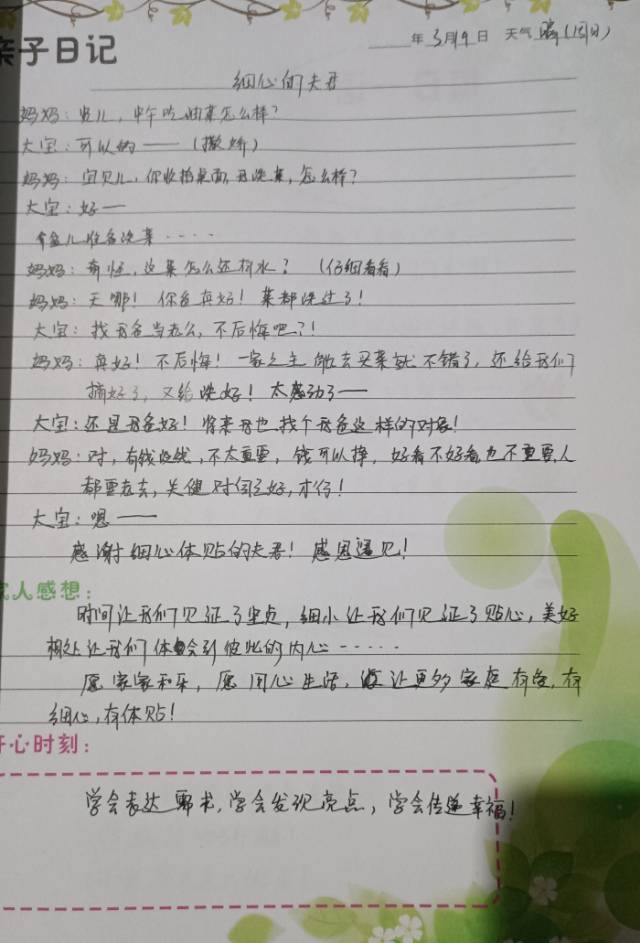 亲子日记
年 3月19日 天气 晴(周日)
细心的夫君
妈妈：贝儿，中午吃油菜怎么样？
大宝：可以的——（撒娇）
妈妈：宝贝儿，你收拾桌面，我洗菜，怎么样？
大宝：好—
拿盆儿准备洗菜····
妈妈：奇怪，这菜怎么还有水？（仔细看看）
妈妈：天哪！你爸真好！菜都洗过了！
大宝：找我爸当老公，不后悔吧？！
妈妈：真好！不后悔！一家之主能去买菜就不错了，还给我们
摘好了，又给洗好！太感动了——
大宝：还是我爸好！将来我也找个我爸这样的对象！
妈妈：对，有钱没钱，不太重要，钱可以挣，好看不好看也不重要，人
都要老去，关键对你好，才行！
大宝：嗯——
感谢细心体贴的夫君！感恩遇见！
家人感想：
时间让我们见证了坚贞，细小让我们见证了贴心，美好
相处让我们体会到彼此的内心·····
愿家家和乐，愿用心生活，让更多家庭有爱，有
细心，有体贴！
开心时刻：
学会表达需求，学会发现亮点，学会传递幸福！